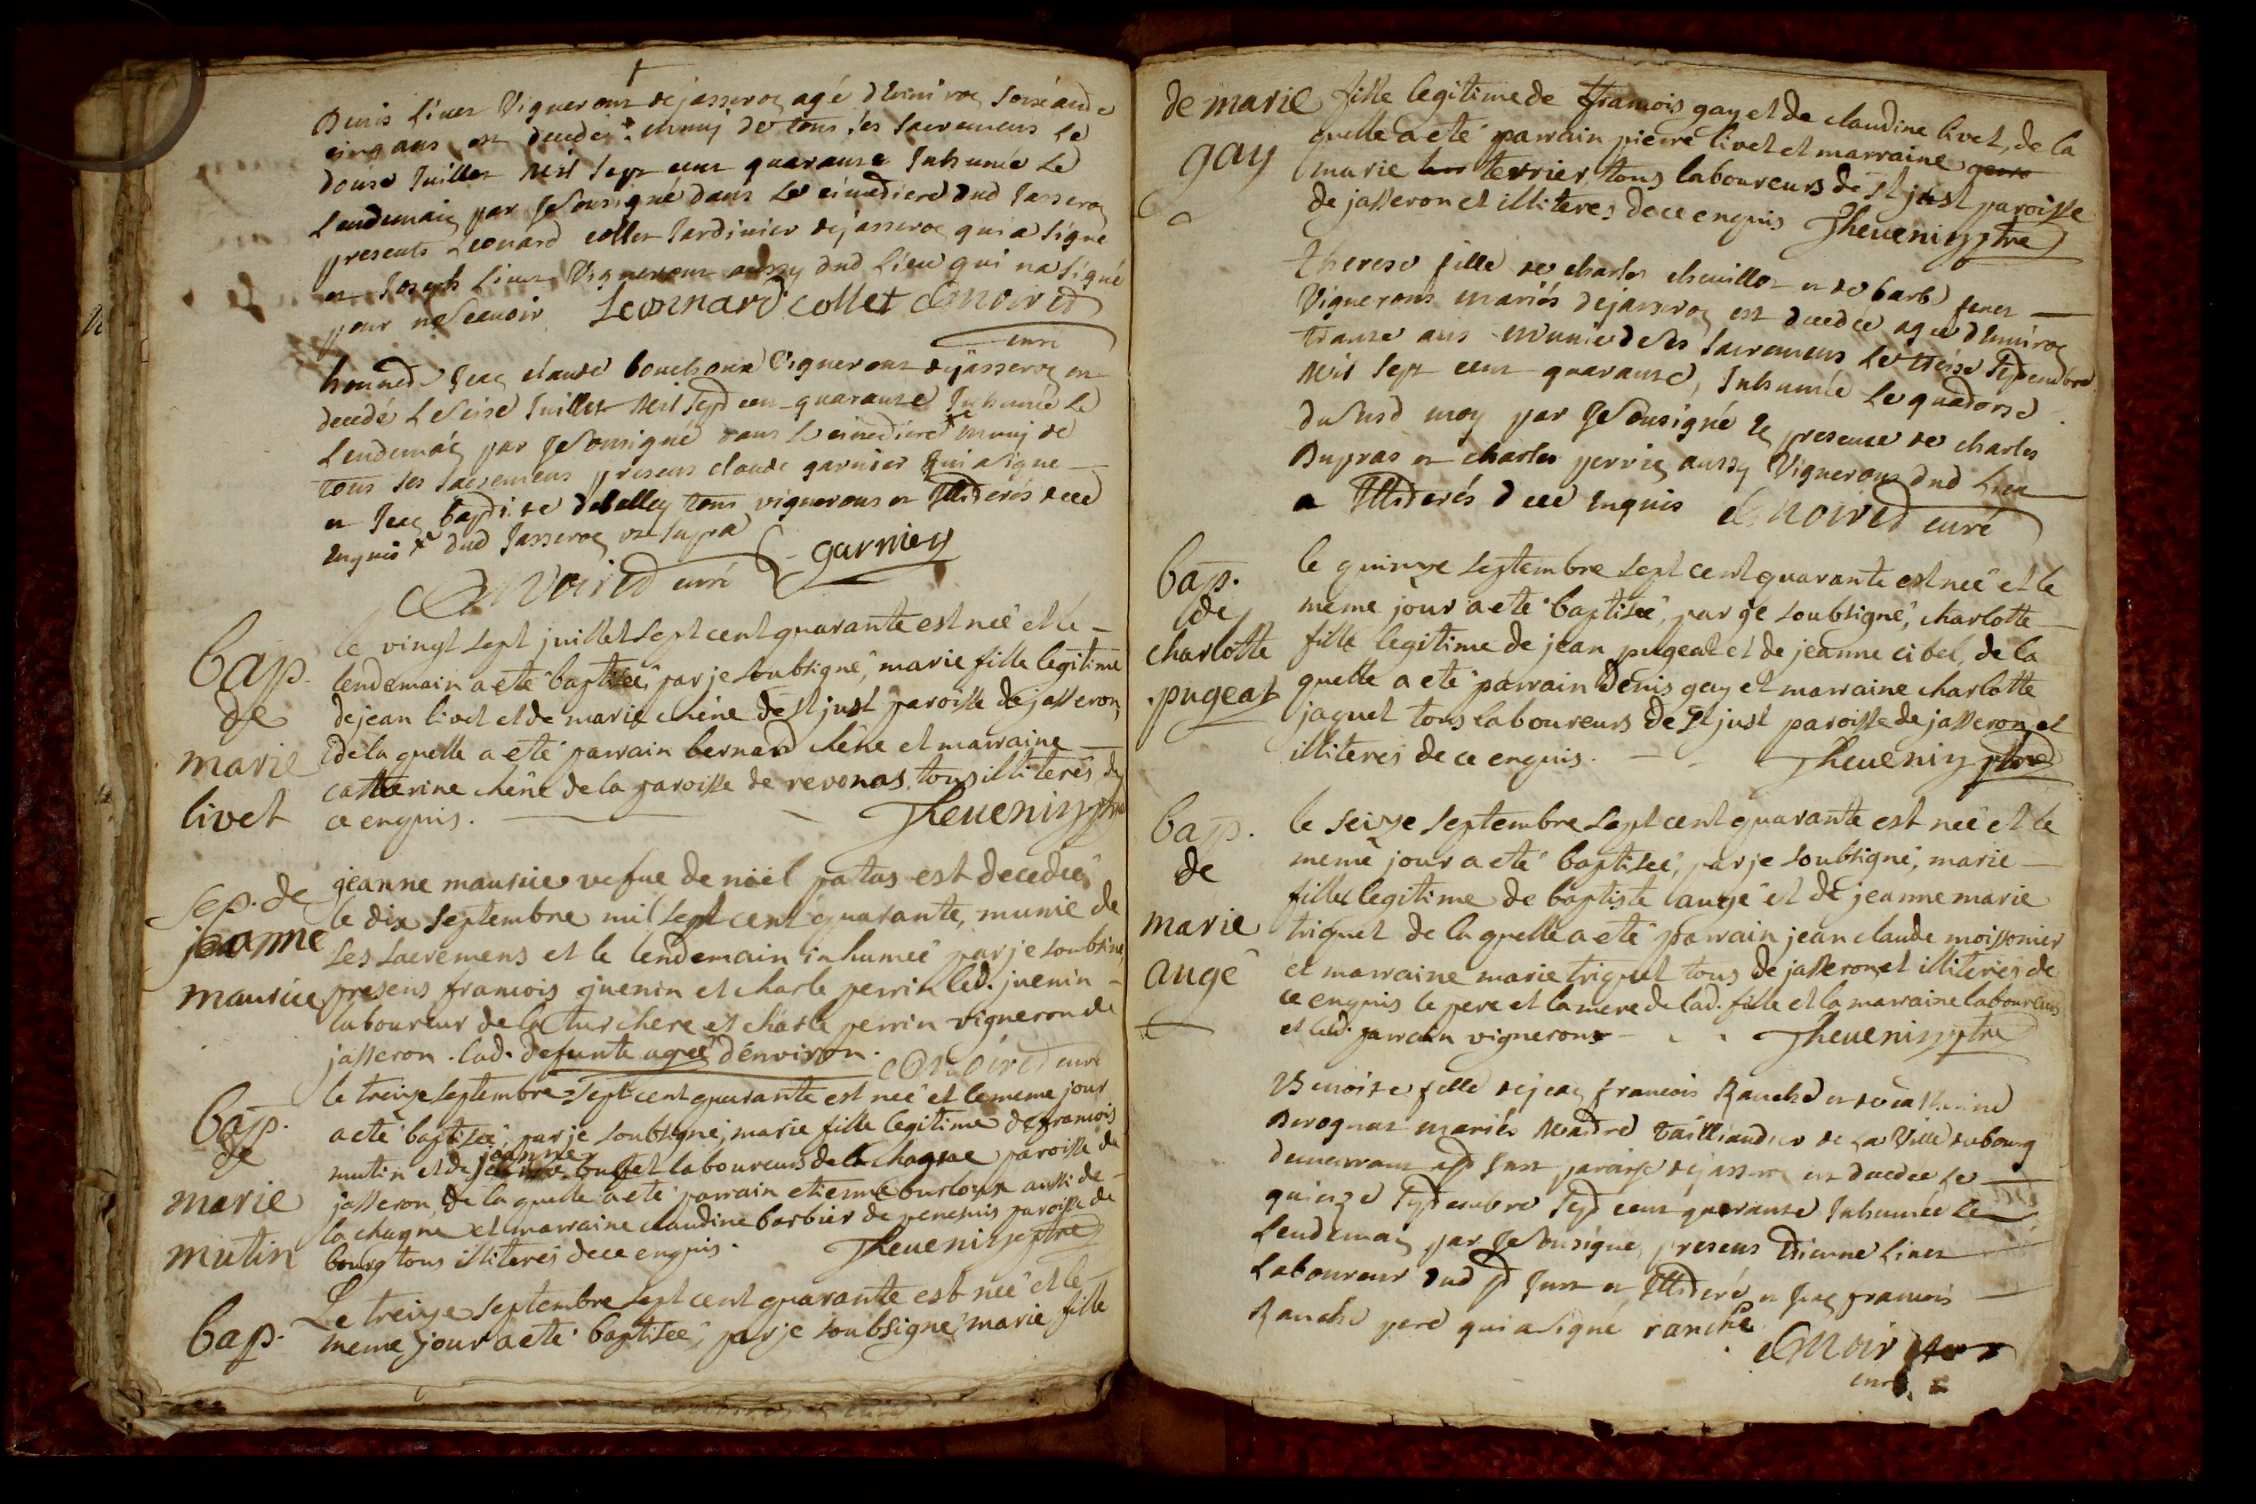 Denis Livet Vigneront de jasseron agé d'Environ soixante
cinq ans est decedé muny de tous ses sacremens Le
douse Juillet Mil sept cent quarante Inhumé Le
Lendemain par Je Sousigné dans Le cimetiere dud Jasseron
presents Leonard collet Jardinier de jasseron qui a signé
et Joseph Livet Vigneront aussy dud Lieu qui na signé
pour ne scavoir Leonnard collet C Noired
curé
honnete Jean claude bouchoux Vigneront de jasseron est
decedé Le seise Juillet Mil sept cent quarante Inhumé Le
Lendemain par Je Sousigné dans Le cimetiere muny de
tous ses sacremens presens claude garnier qui a signe
et Jean baptiste debelley tous vignerons et Illiterés de ce
Enquis dud Jasseron ut supra
C Noired curé garnier
Bap.
de
marie
livet
le vingt sept juillet sept cent quarante est neé et le
lendemain a eté baptiseé, par je soubsigné, marie fille legitime
de jean livet et de marie chêne de st just paroisse de jasseron,
de la quelle a eté parrain bernard chêne et marraine
catterine chêne de la paroisse de revonas tous illiterés de
ce enquis. Thevenin ptre
sep. de
jeanne
maurice
jeanne maurice vefue de noël patas est decedeé
le dix septembre mil sept cent quarante, munie de
ses sacremens et le lendemain inhumeé par je soubsigné
presens francois juenin et charle perrin led. juenin
laboureur de la turchere et charle perrin vigneron de
jasseron. lad. defunte ageé d'environ. C Noired curé
Bap.
de
marie
mutin
le treize septembre sept cent quarante est neé et le meme jour
a eté baptiseé, par je soubsigné, marie fille legitime de francois
mutin et de jeanne buffet laboureurs de la chagne paroisse de
jasseron, de la quelle a eté parrain etienne burloux aussi de
la chagne et marraine claudine barbier de penessuis paroisse de
bourg tous illiterés de ce enquis. Thevenin ptre
Bap.
Le treize septembre sept cent quarante est neé et le
meme jour a eté baptiseé, par je soubsigné marie fille
de marie
gay
fille legitime de francois gay et de claudine livet, de la
quelle a eté parrain pierre livet et marraine
marie terrier, tous laboureurs de st just paroisse
de jasseron et illiteres de ce enquis Thevenin ptre
therese fille de charles chevillot et de barbe
Vignerons mariés de jasseron est decedée agée d'Environ
trante ans munie de Ses sacremens Le treise septembre
Mil sept cent quarante, Inhumée Le quatorse
du susd moy par Je Sousigné En presence de charles
Dupras et charles perrin aussy Vignerons dud Lieu
et Illiterés de ce Enquis C Noired curé
bap.
de
charlotte
pugeat
le quinze septembre sept cent quarante est neé et le
même jour a eté baptiseé, par je soubsigné, charlotte
fille legitime de jean pugeat et de jeanne cibet, de la
quelle a eté parrain denis gay et marraine charlotte
jaquet tous laboureurs de st just paroisse de jasseron et
illiterés de ce enquis. Thevenin ptre
bap.
de
marie
augé
le seize septembre sept cent quarante est neé et le
meme jour a eté baptiseé, par je soubsigné, marie
fille legitime de baptiste augé et de jeanne marie
triquet de la quelle a eté parrain jean claude moissonier
et marraine marie triquet tous de jasseron et illiterés de
ce enquis le pere et la mere de lad. fille et la marraine laboureurs
et led. parrain vigneron Thevenin ptre
Benoite fille de jean francois Ranche et de catherine
Perognat mariés Maitre tailliandier de La Ville de bourg
demeurant a st Just paroisse de jasseron est decedée Le
quinze septembre sept cent quarante Inhumée Le
Lendemain par Je Sousigné, presens Etienne Livet
Laboureur dud st Just et Illiteré et Jean francois
Ranche pere qui a signé ranche
C Noired
curé